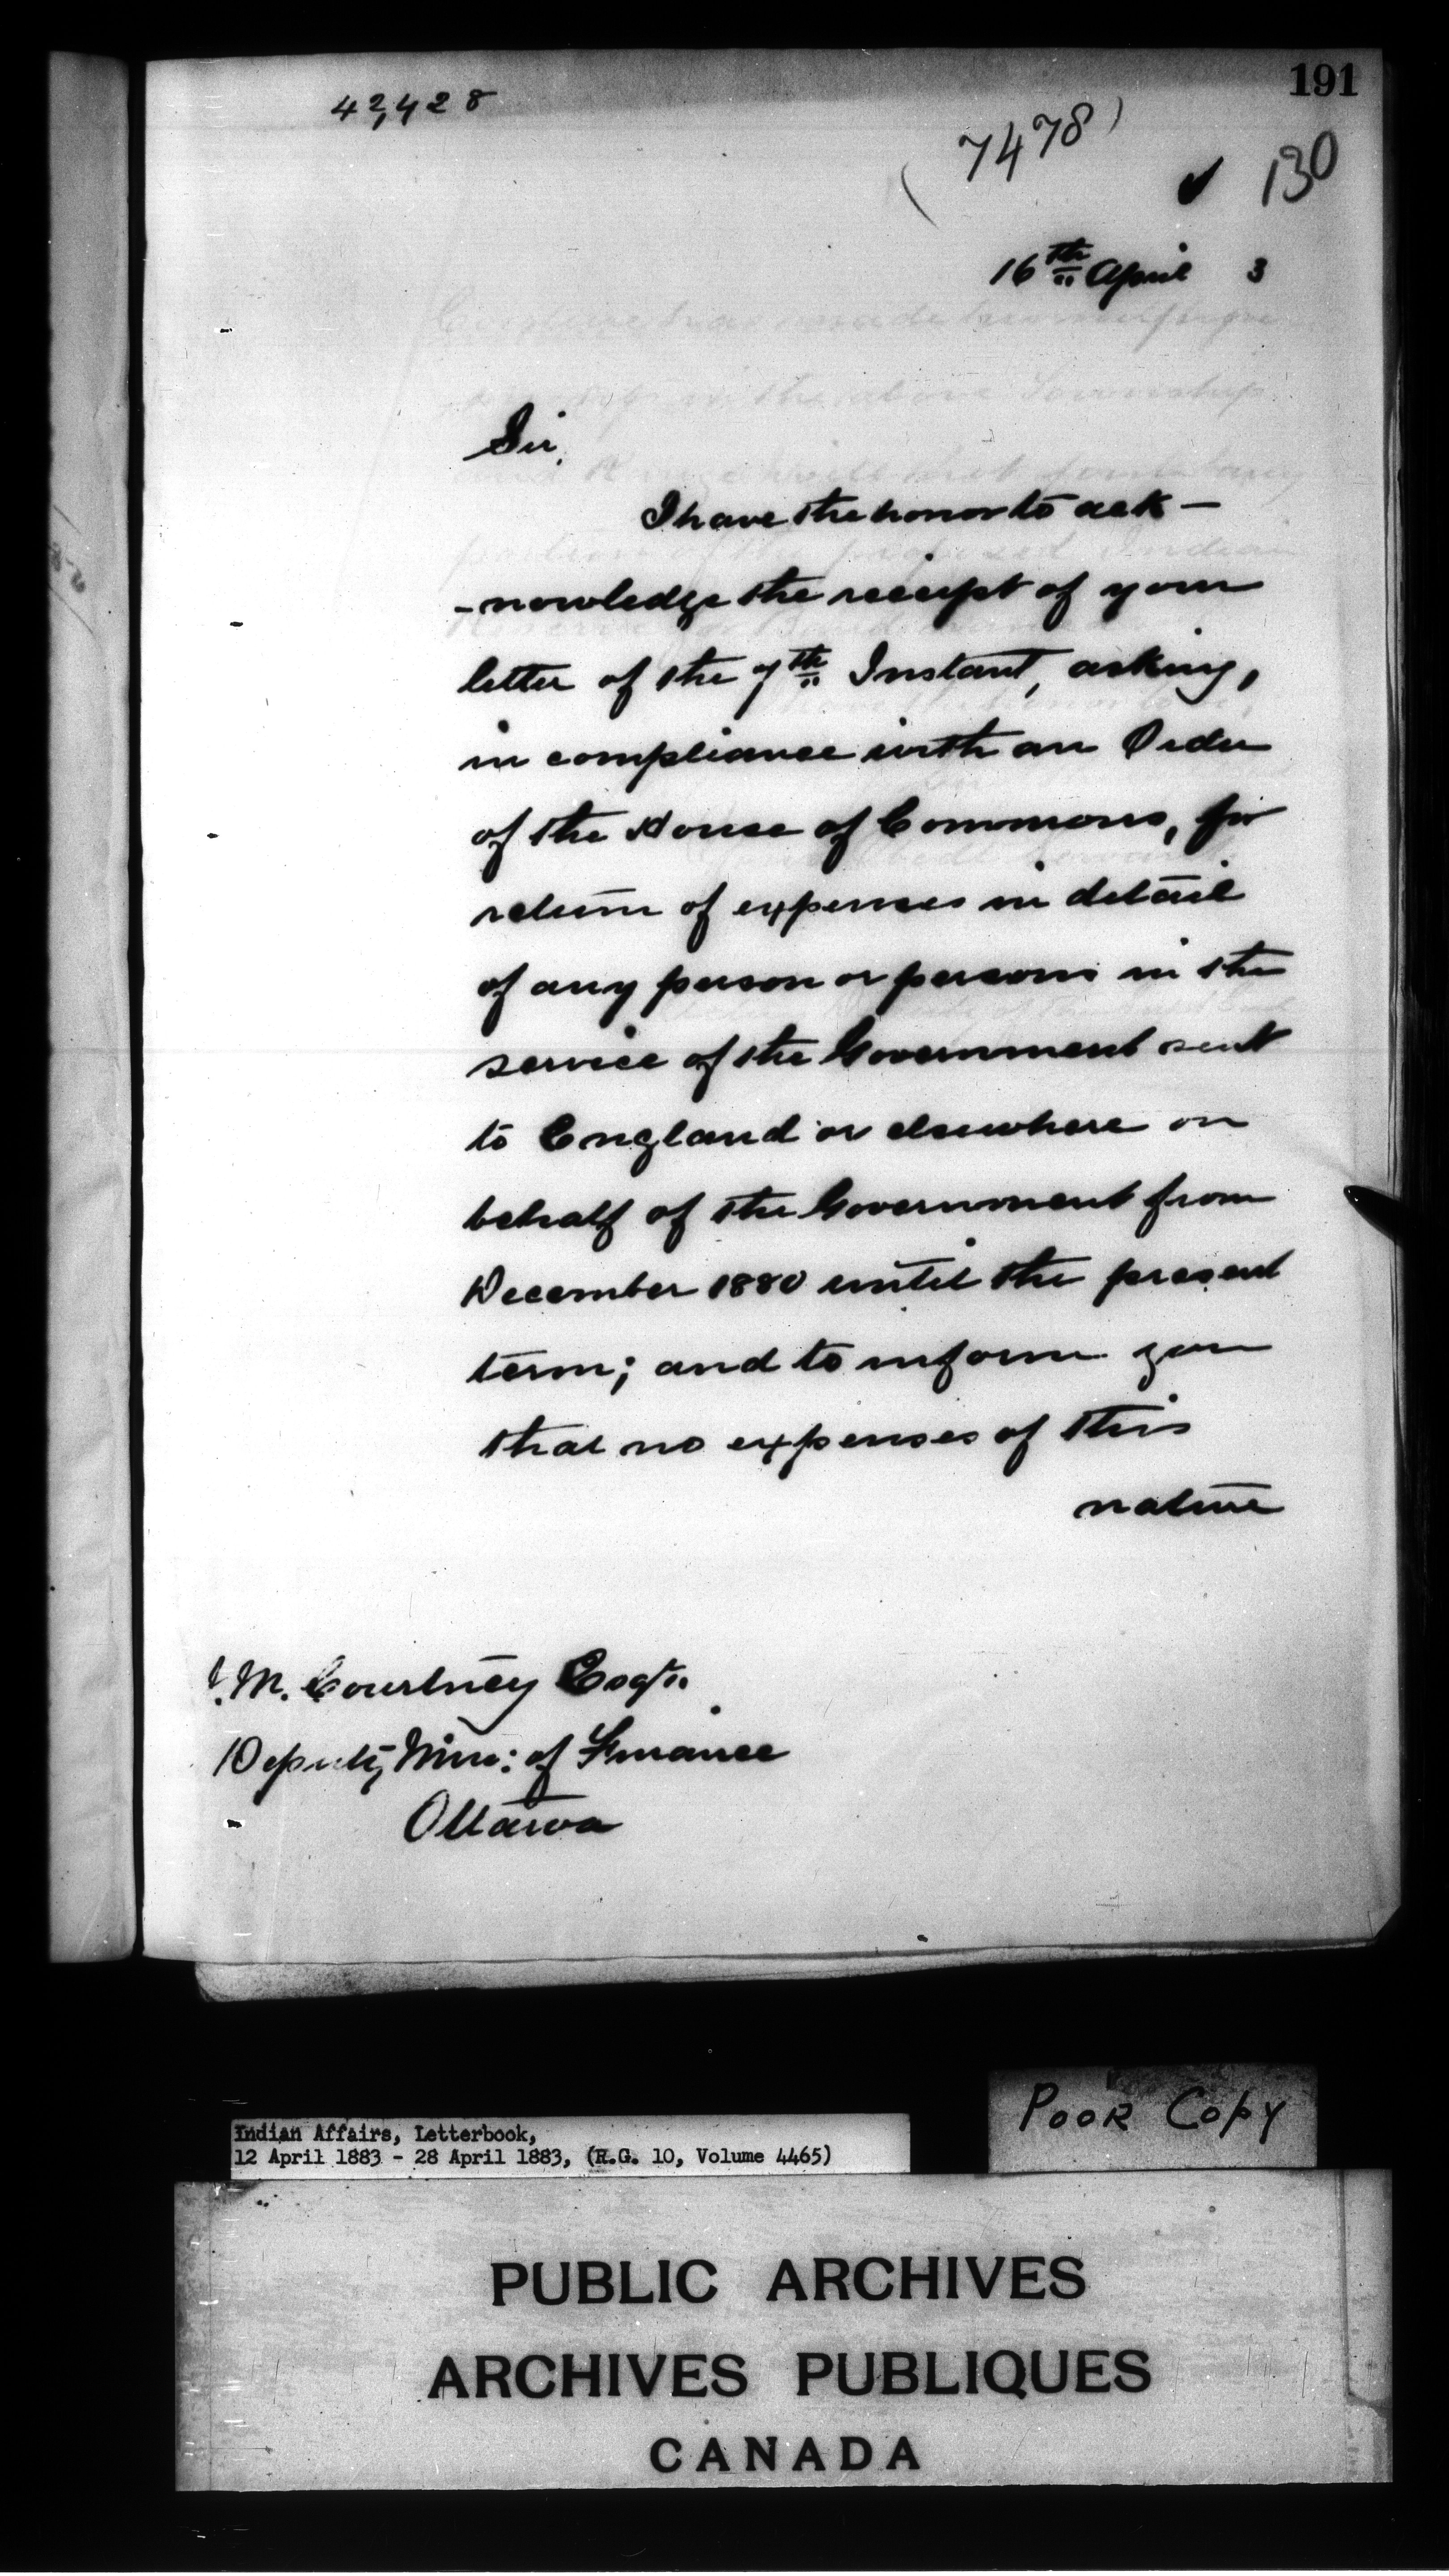 191
42,428
(7478)
130
16th April 3
Sir,
I have the honor to ack-
-nowledge the receipt of your
letter of the 7th Instant, asking,
in compliance with an Order
of the House of Commons, for
return of expenses in detail
of any person or persons in the
service of the Government sent
to England or elsewhere on
behalf of the Government from
December 1880 until the present
term; and to inform you
that no expenses of this
nature
J. M. Courtney Esqr.
Deputy Minr: of Finance
Ottawa
POOR COPY
Indian Affairs, Letterbook,
12 April 1883 - 28 April 1883, (R.G. 10, Volume 4465)
PUBLIC ARCHIVES
ARCHIVES PUBLIQUES
CANADA